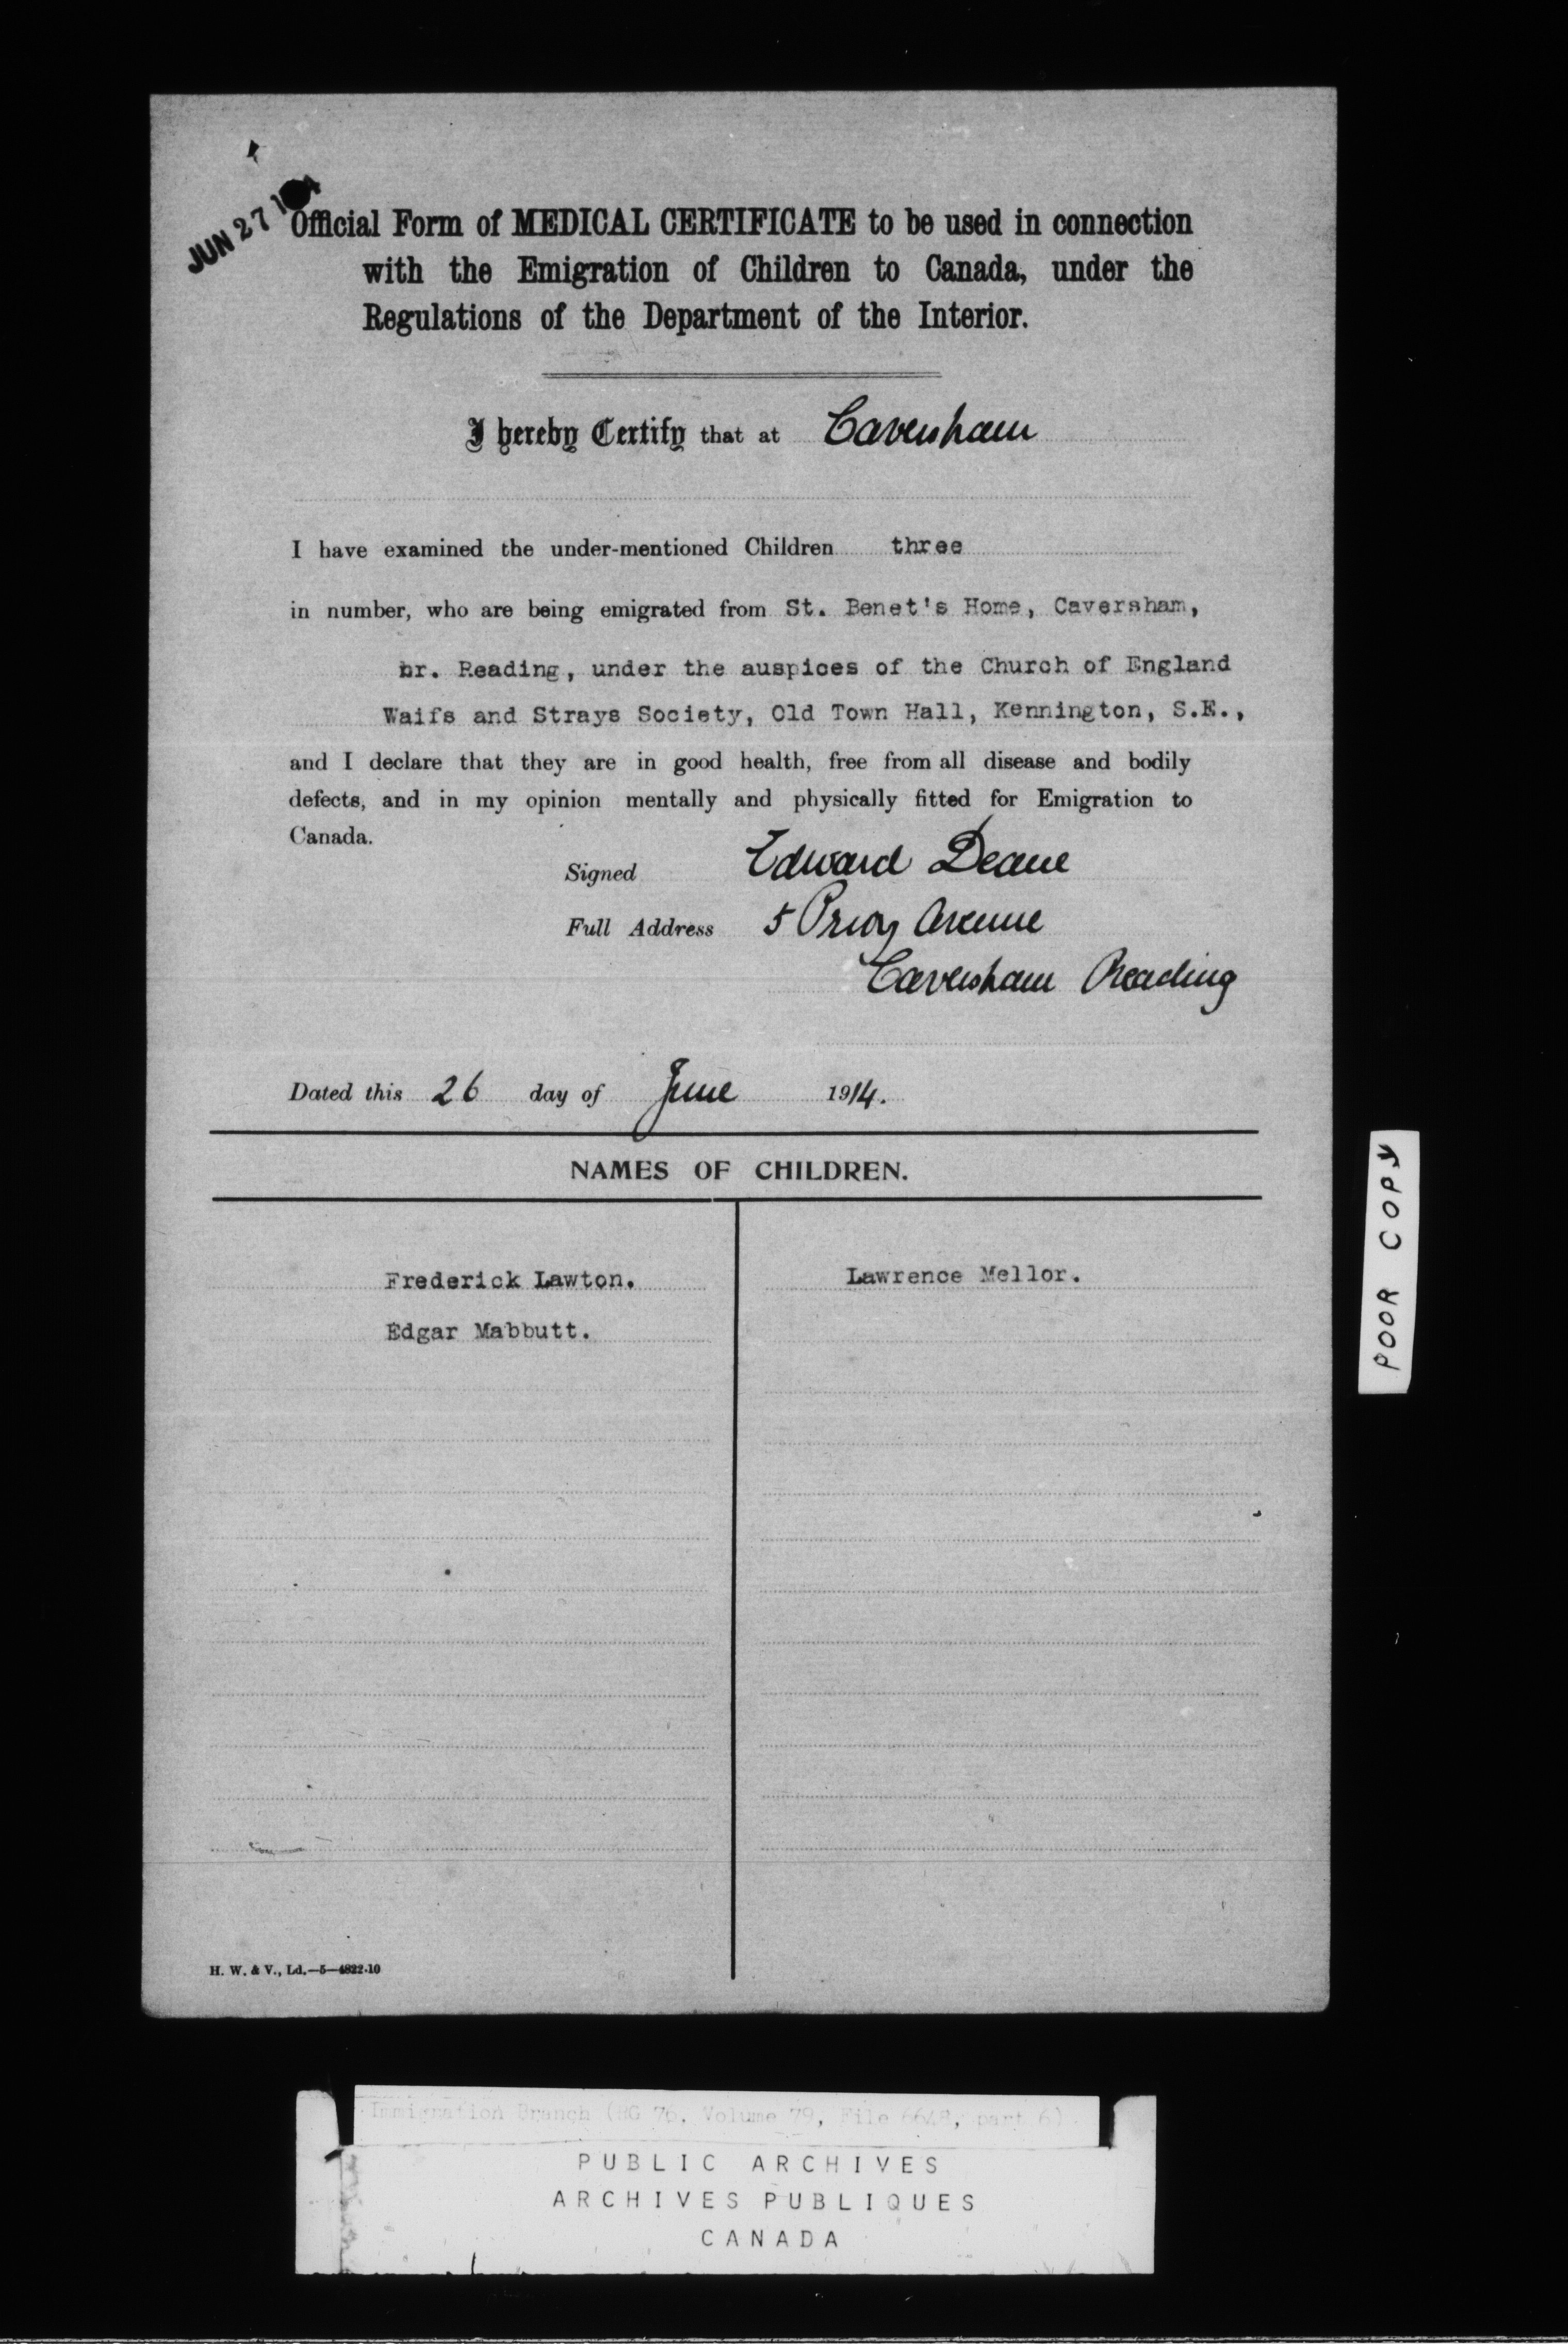 JUN 27 1914
Official Form of MEDICAL CERTIFICATE to be used in connection
with the Emigration of Children to Canada, under the
Regulations of the Department of the Interior.
I hereby Certify that at Caversham
I have examined the under-mentioned Children three
in number, who are being emigrated from St. Benet's Home, Caversham,
nr. Reading, under the auspices of the Church of England
Waifs and Strays Society, Old Town Hall, Kennington, S.E.,
and I declare that they are in good health, free from all disease and bodily
defects, and in my opinion mentally and physically fitted for Emigration to
Canada.
Signed Edward Deane
Full Address 5 Priory Avenue
Caversham Reading
Dated this 26 day of June 1914.
NAMES OF CHILDREN.
Frederick Lawton. Lawrence Mellor.
Edgar Mabbutt.
POOR COPY
H. W. & V., Ld.—5—4822-10
Immigration Branch (RG 76, Volume 79, File 6648, part 6)
PUBLIC ARCHIVES
ARCHIVES PUBLIQUES
CANADA